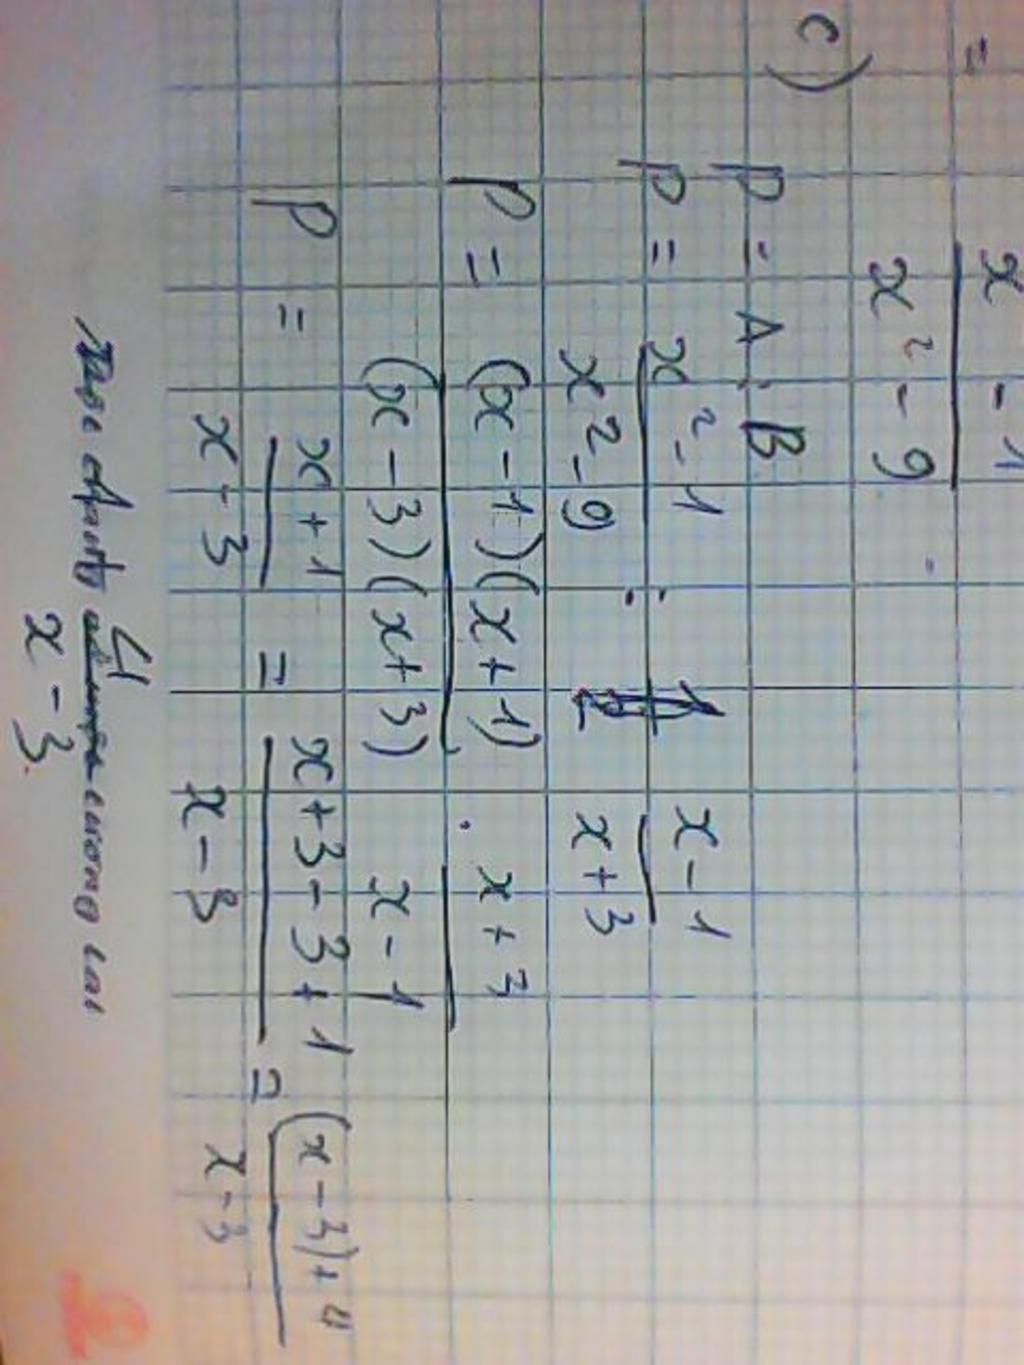 =
x - 1
x² - 9
c)
P = A : B
P = x² - 1 / x² - 9 : x - 1 / x + 3
P = (x - 1)(x + 1) / (x - 3)(x + 3) . x + 3 / x - 1
P = x + 1 / x - 3 = x + 3 - 3 + 1 / x - 3 = (x - 3) + 4 / x - 3
4
x - 3